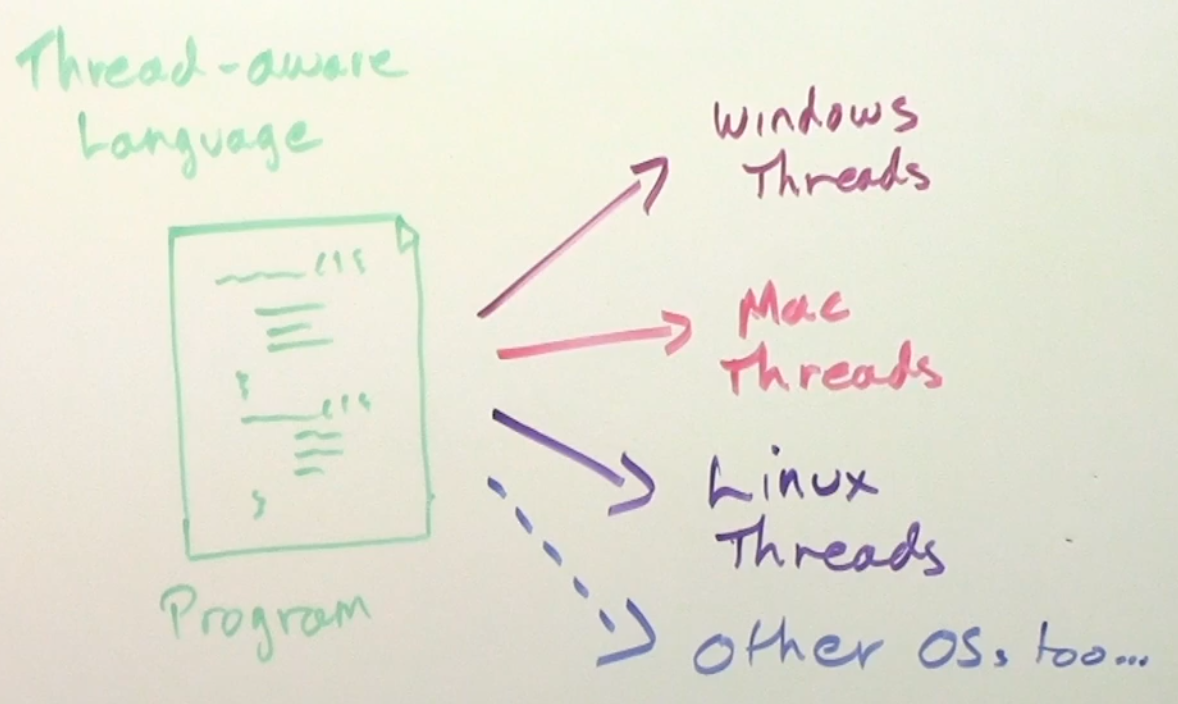 Thread-aware
Language
Program
Windows
Threads
Mac
Threads
Linux
Threads
Other OSs too...